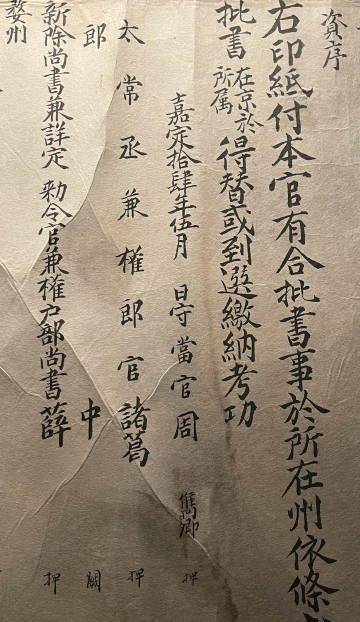 資序
右印紙付本官有合批書事於所在州依條
批書在京於所属得替或到選繳納考功
嘉定拾肆年伍月 日守當官周 雋卿 押
太常丞兼權郎官諸葛 押
郎 中 闕
新除尚書兼詳定 勅令官兼權户部尚書薛 押
婺州